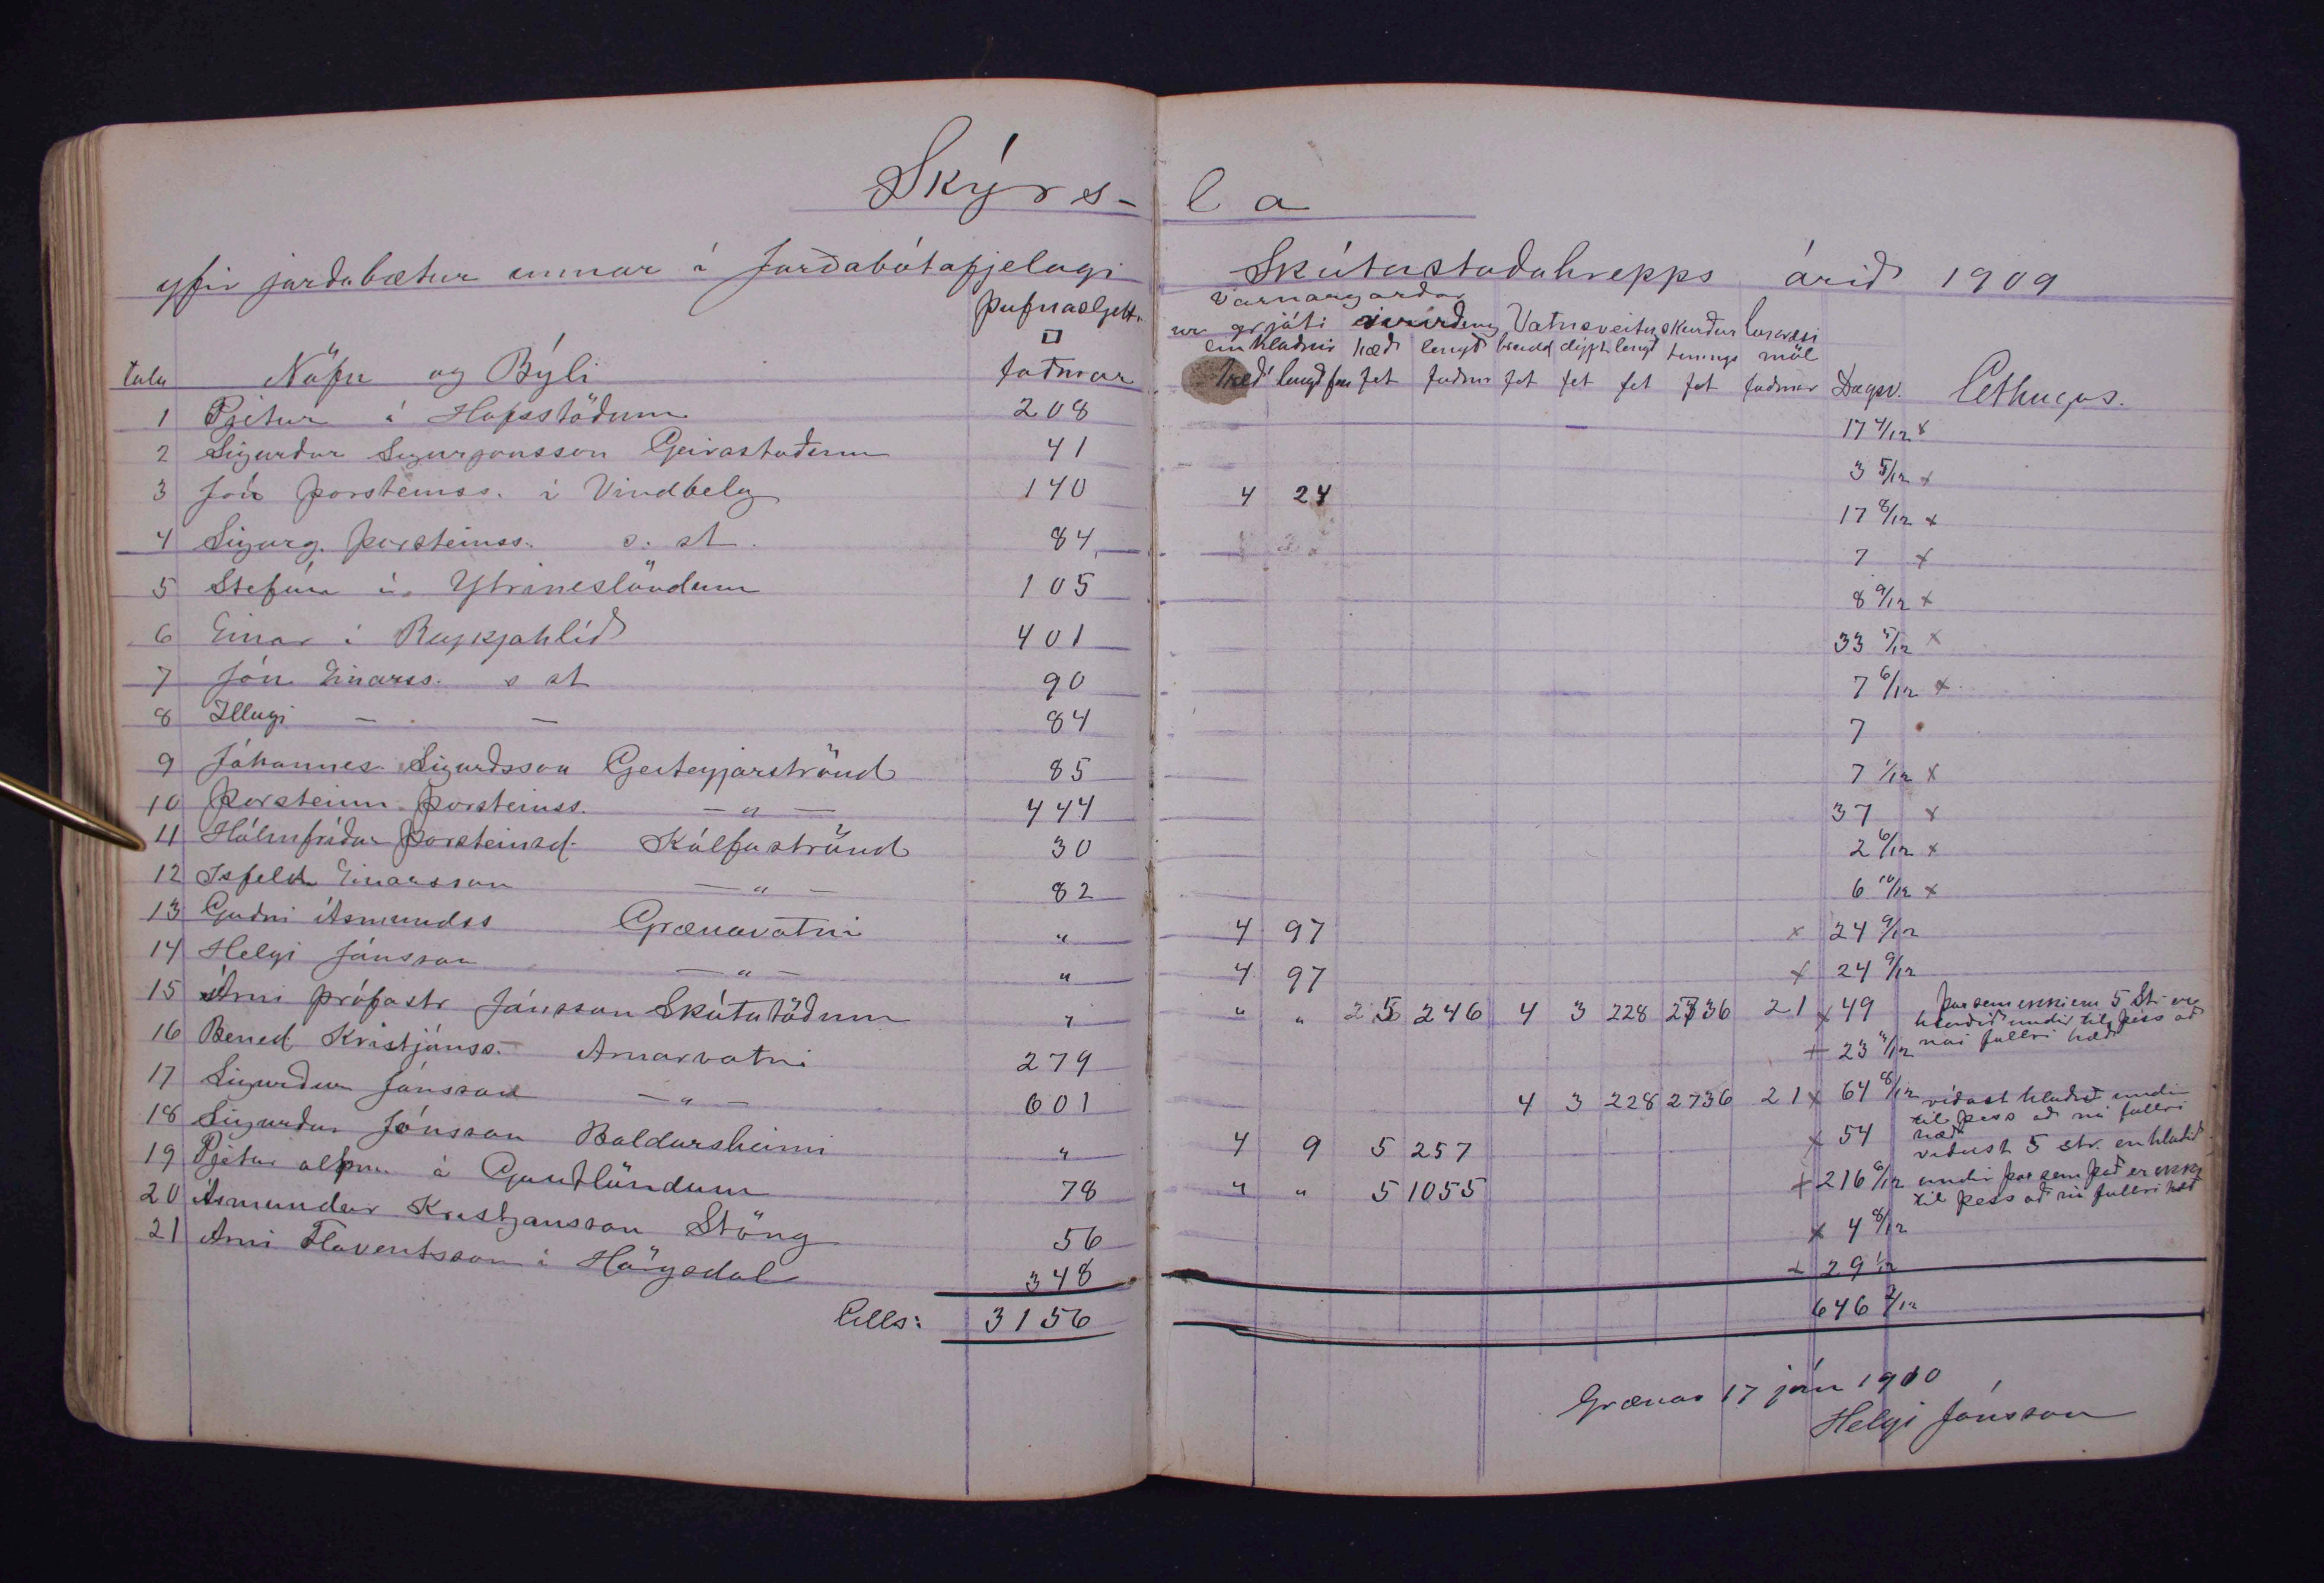 Skýrs-
yfir jarðabætur unnar í Jarðabótafjelagi
þufnasljett.
□
tala Nöfn og Býli faðmar
1 Pjetur á Hofsstöðum 208
2 Sigurður Sigurjonsson Geirastöðum 41
3 Jón Þorsteinss. í Vindbelg 140
4 Sigurg. Þorsteinss. s. st. 84
5 Stefán á Ytrineslöndum 105
6 Einar í Reykjahlíð 401
7 Jón Einarss. s st 90
8 Illugi — — 84
9 Jóhannes Sigurðsson Geiteyjarströnd 85
10 Þorsteinn Þorsteinss. — " — 444
11 Hólmfríður Þorsteinsd. Kálfaströnd 30
12 Isfeld Einarsson — " — 82
13 Guðni Ásmundss Grænavatni "
14 Helgi Jónsson — " — "
15 Árni prófastr Jónsson Skútustöðum "
16 Bened Kristjánss. Arnarvatni 279
17 Sigurður Jónsson — " — 601
18 Sigurður Jónsson Baldursheimi "
19 Pjetur alþm. á Gautlöndum 78
20 Ásmundur Kristjansson Stöng 56
21 Arni Flóventsson í Hörgsdal 348
Alls: 3156
la
Skútustaðahrepps árið 1909
Varnargarðar
úr grjóti Vatnsveituskurður
einhlaðnir hæð lengd breidd dýpt lengd tenings mál
hæð lengd fet faðmar fet fet fet fet faðmar Dagsv. Athugas.
17 4/12 x
3 5/12 x
4 24 17 8/12 x
7 x
8 9/12 x
33 5/12 x
7 6/12 x
7
7 1/12 x
37 x
2 6/12 x
6 10/12 x
4 97 x 24 9/12
4 97 x 24 9/12
" " 5 246 4 3 228 2736 21 x 49 þar sem ekki eru 5 str. er
hlaðið undir til þess að
+ 23 3/12 ná fullri hæð
4 3 228 2736 21 x 64 8/12 víðast hlaðið undir
til þess að ná fullri
hæð
4 9 5 257 x 54 víðast 5 str. en hlaðið
" " 5 1055 + 216 6/12 undir þar sem það er ekki
til þess að ná fullri hæð
x 4 8/12
x 29 1/12
646 2/12
Grænav 17 jan 1910
Helgi Jónsson